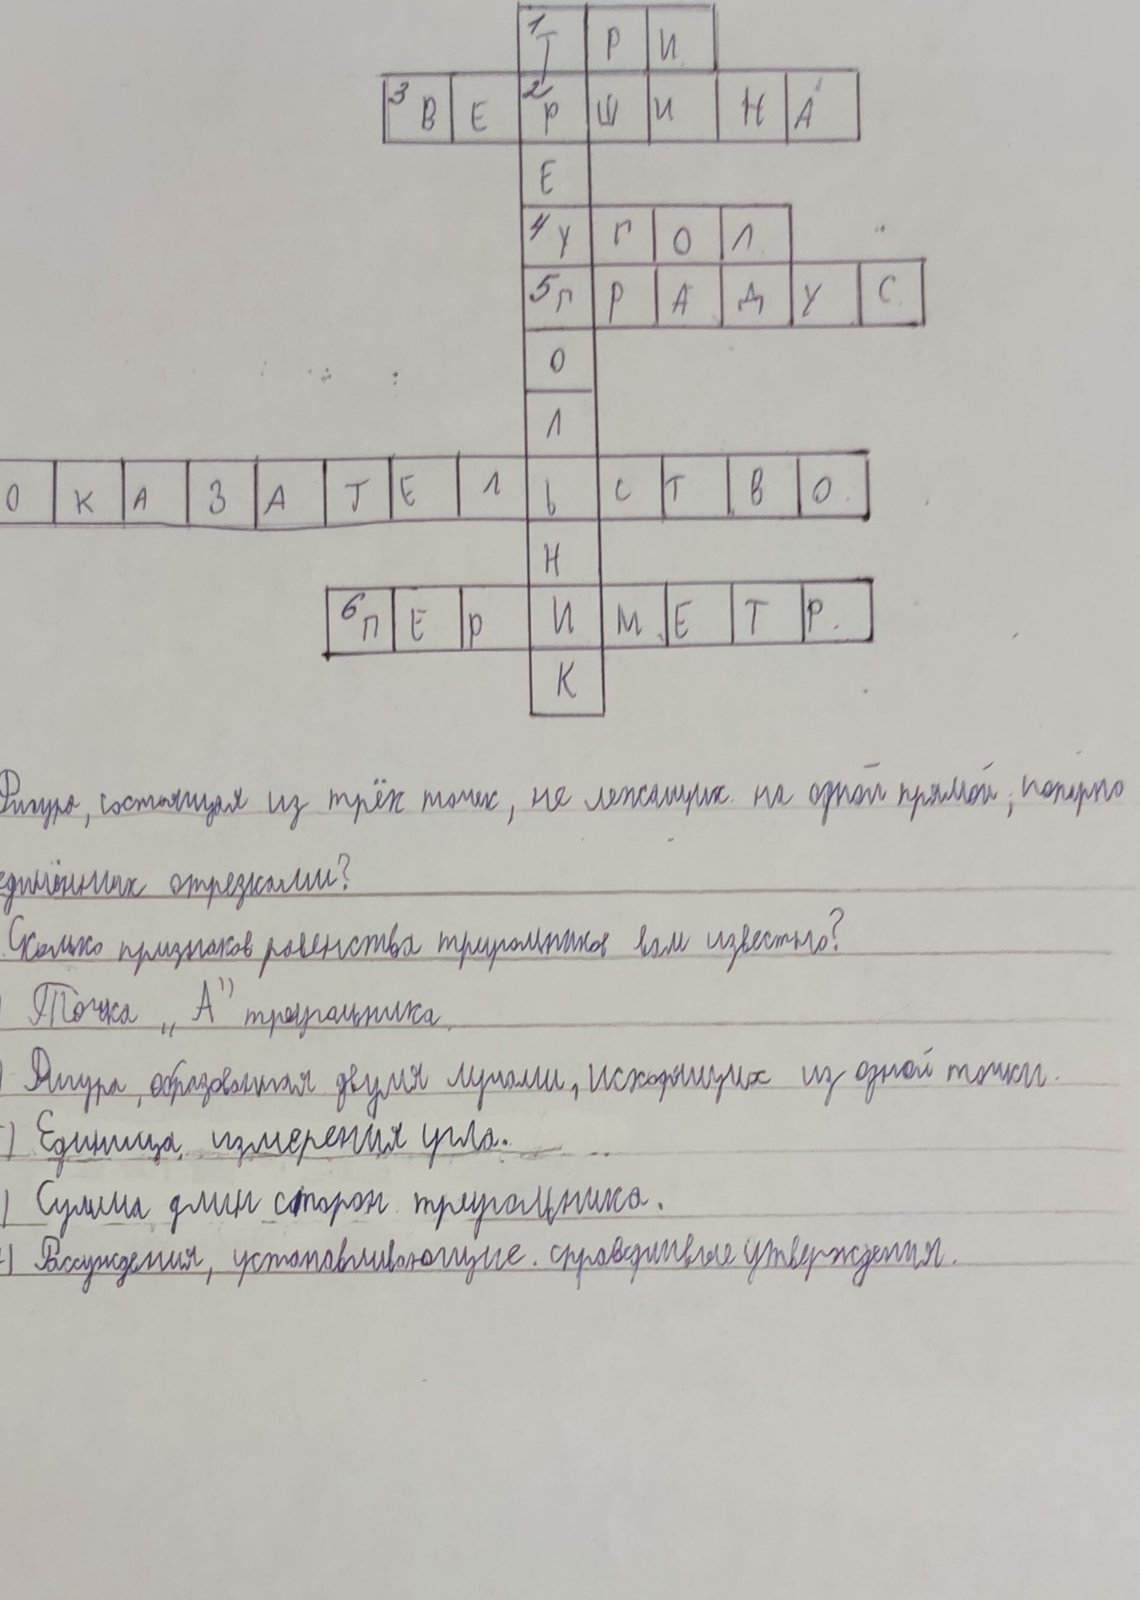 1 Т Р И
3 В Е 2 Р Ш И Н А
Е
4 У Г О Л
5 Г Р А Д У С
О
Л
О К А З А Т Е Л Ь С Т В О
Н
6 П Е Р И М Е Т Р
К
Фигура, состоящая из трёх точек, не лежащих на одной прямой, попарно
единённых отрезками?
Сколько признаков равенства треугольников вам известно?
) Точка „А" треугольника
) Фигура, образованная двумя лучами, исходящих из одной точки.
) Единица измерения угла.
) Сумма длин сторон треугольника.
) Рассуждения, устанавливающие справедливые утверждения.